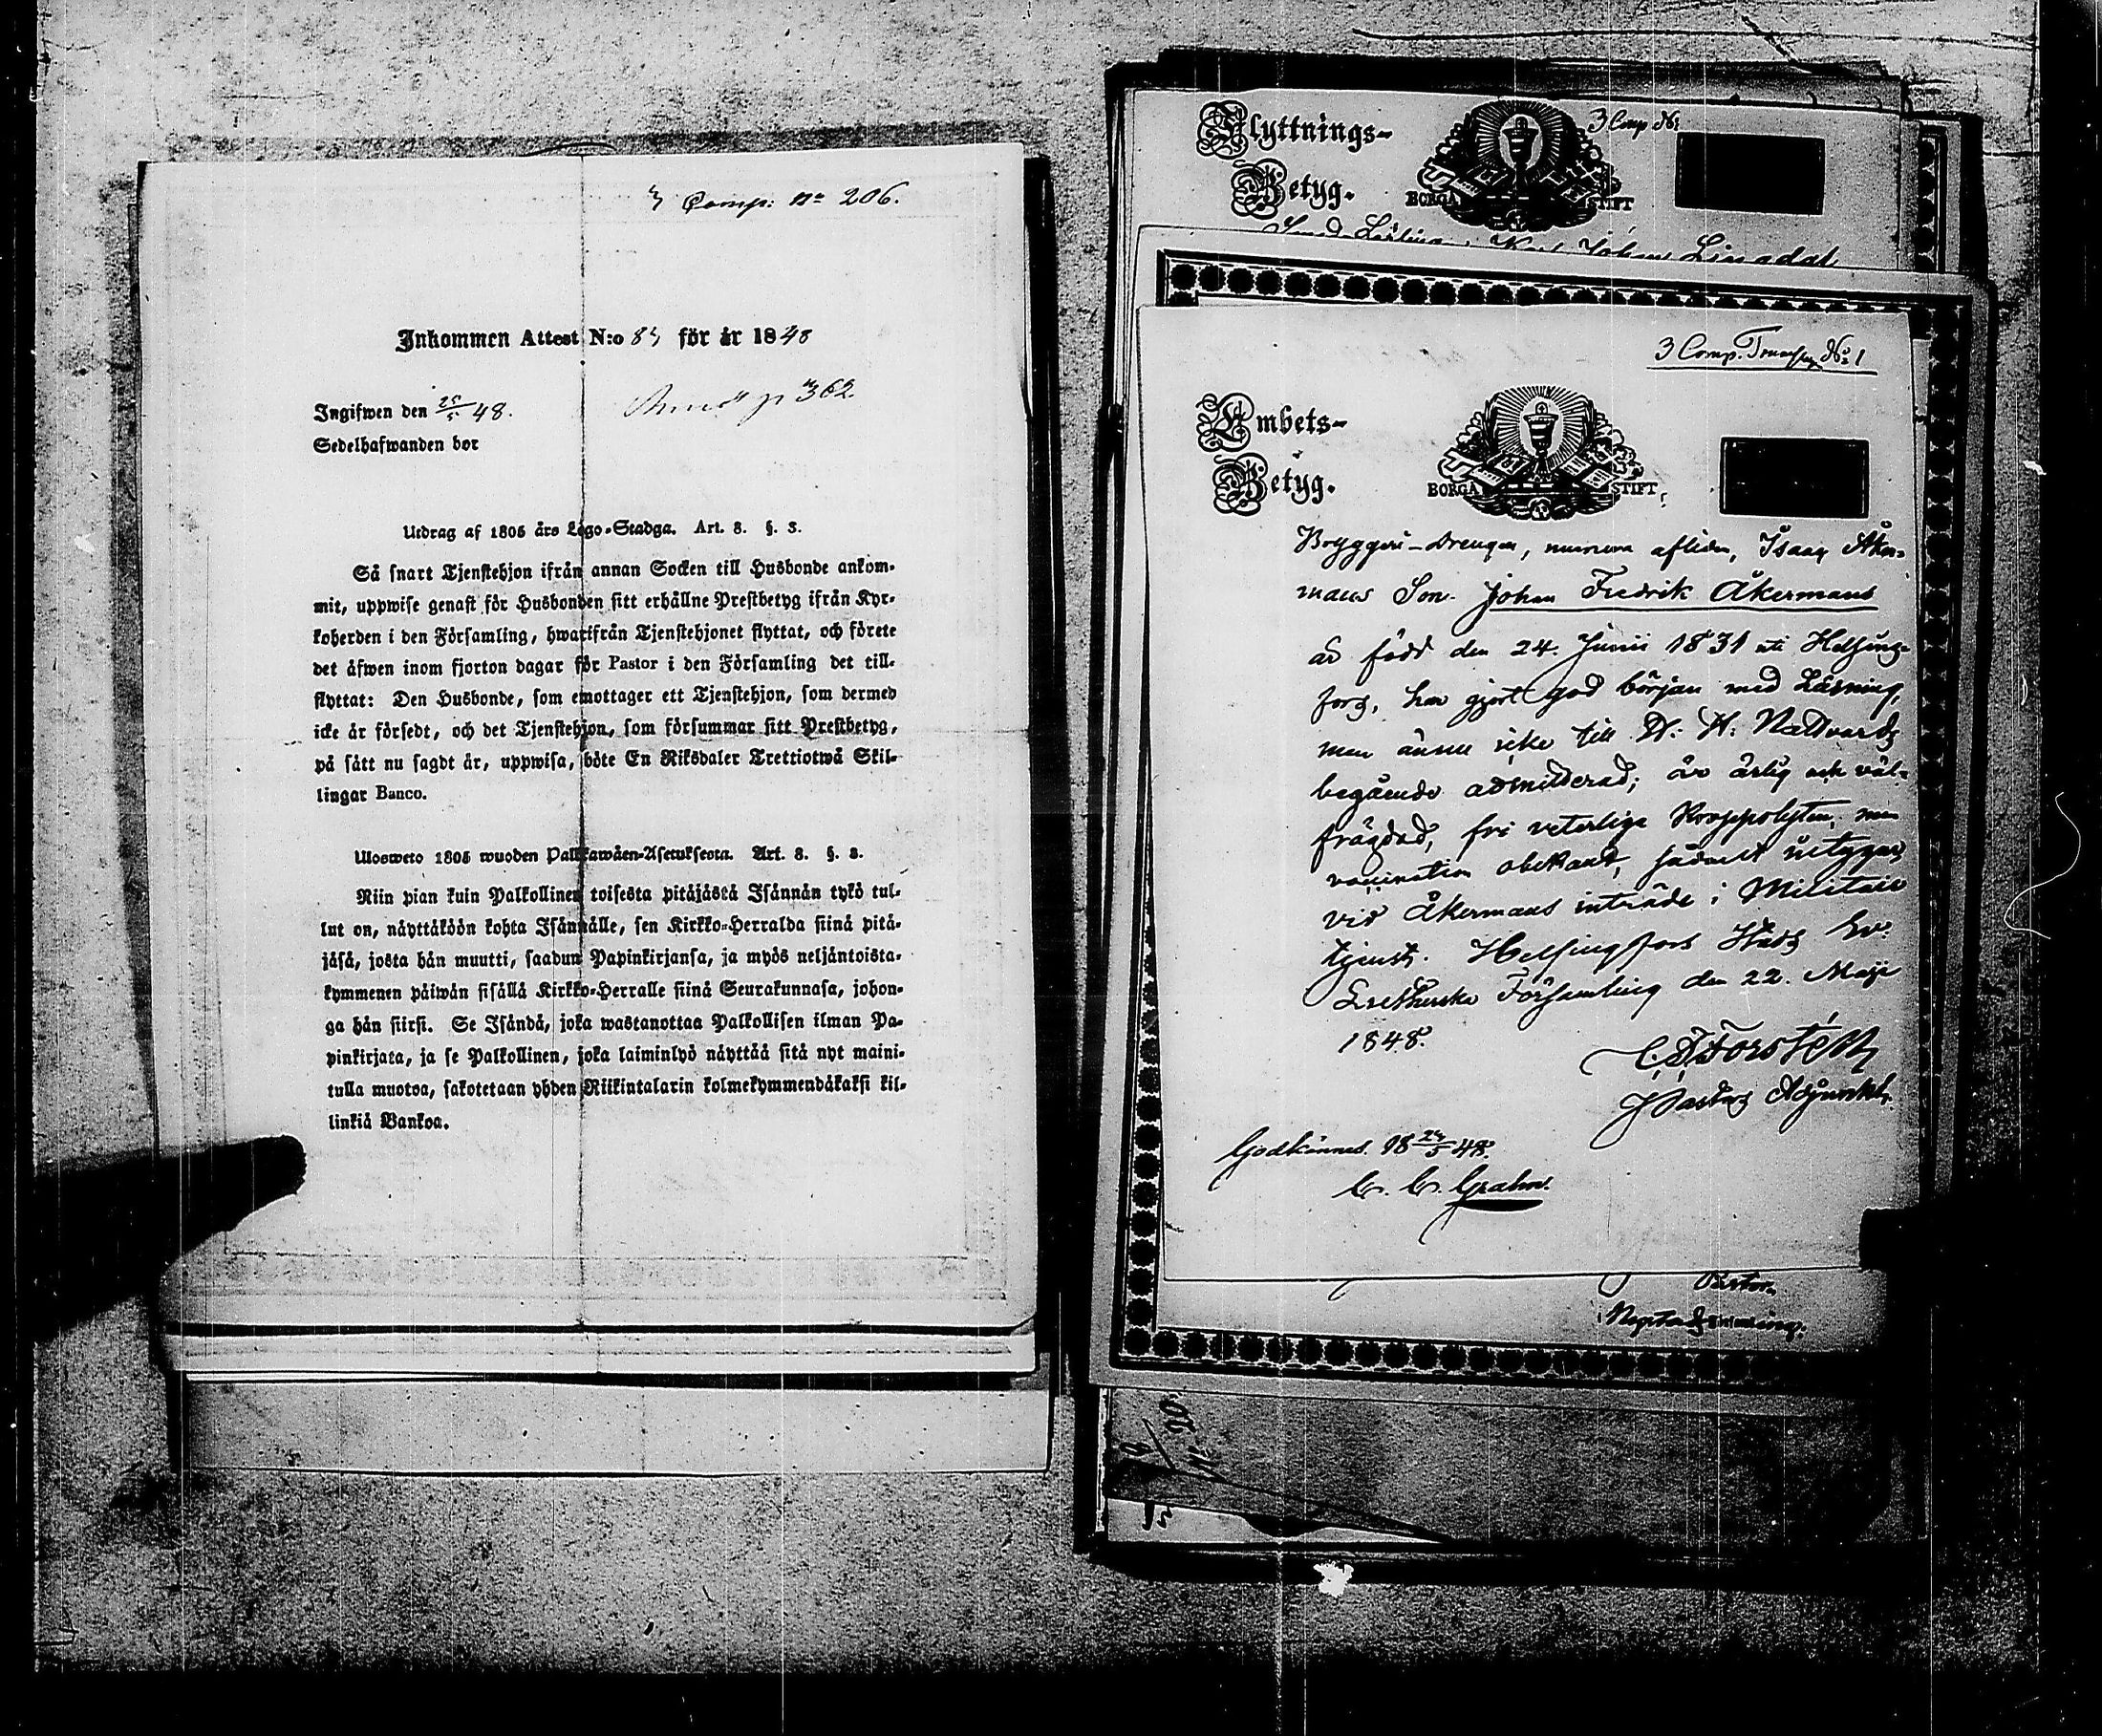 Comp: No 206.
Inkommen Attest N:o 83 för år 1848
Ingifwen den 25/5 48.
362.
Sedelhafwanden bor
Utdrag af 1805 års Lego-Stadga. Art. 8. §. 3.
Så snart Tjenstehjon ifrån annan Socken till Husbonde ankom-
mit, uppwise genast för Husbonden sitt erhållne Prestbetyg ifrån Kyr-
koherden i den Församling, hwarifrån Tjenstehjonet flyttat, och förete
det äfwen inom fjorton dagar för Pastor i den Församling det till-
flyttat: Den Husbonde, som emottager ett Tjenstehjon, som dermed
icke är försedt, och det Tjenstehjon, som försummar sitt Prestbetyg,
på sätt nu sagdt är, uppwisa, böte En Riksdaler Trettiotwå Skil-
lingar Banco.
Ulosweto 1805 wuoden Palkkawäen-Asetuksesta. Art. 8. §. 3.
Niin pian kuin Palkollinen toisesta pitäjästä Isännän tykö tul-
lut on, näyttäköön kohta Isännälle, sen Kirkko-Herralda siinä pitä-
jäsä, josta hän muutti, saadun Papinkirjansa, ja myös neljäntoista-
kymmenen päiwän sisällä Kirkko-Herralle siinä Seurakunnasa, johon-
ga hän siirsi. Se Isändä, joka wastanottaa Palkollisen ilman Pa-
pinkirjata, ja se Palkollinen, joka laiminlyö näyttää sitä nyt maini-
tulla muotoa, sakotetaan yhden Riikintalarin kolmekymmendäkaksi kil-
linkiä Bankoa.
Flyttnings-
Betyg.
3 Comp No
BORGÅ STIFT
Johan Linadal
3 Comp. No 1
Embets-
Betyg.
BORGÅ STIFT
Bryggeri-Drengen, numera afliden, Isaac Åker-
mans Son Johan Fredrik Åkermans
är född den 24. Junii 1831 uti Helsing-
fors, har gjort god början med Läsning,
men ännu icke till H: H: Nattvards
begående admitterad; är ärlig och väl-
frägdad, fri veterliga Kroppslyten, men
vaccination obekant, hvilket betygas
vid Åkermans inträde i Militair
tjenst. Helsingfors Stads Ev.
Lutherska Församling den 22. Maji
1848.
Forstén
Pastors Adjunkt.
Godkännes. 18 24/5 48.
Grahn.
Pastor.